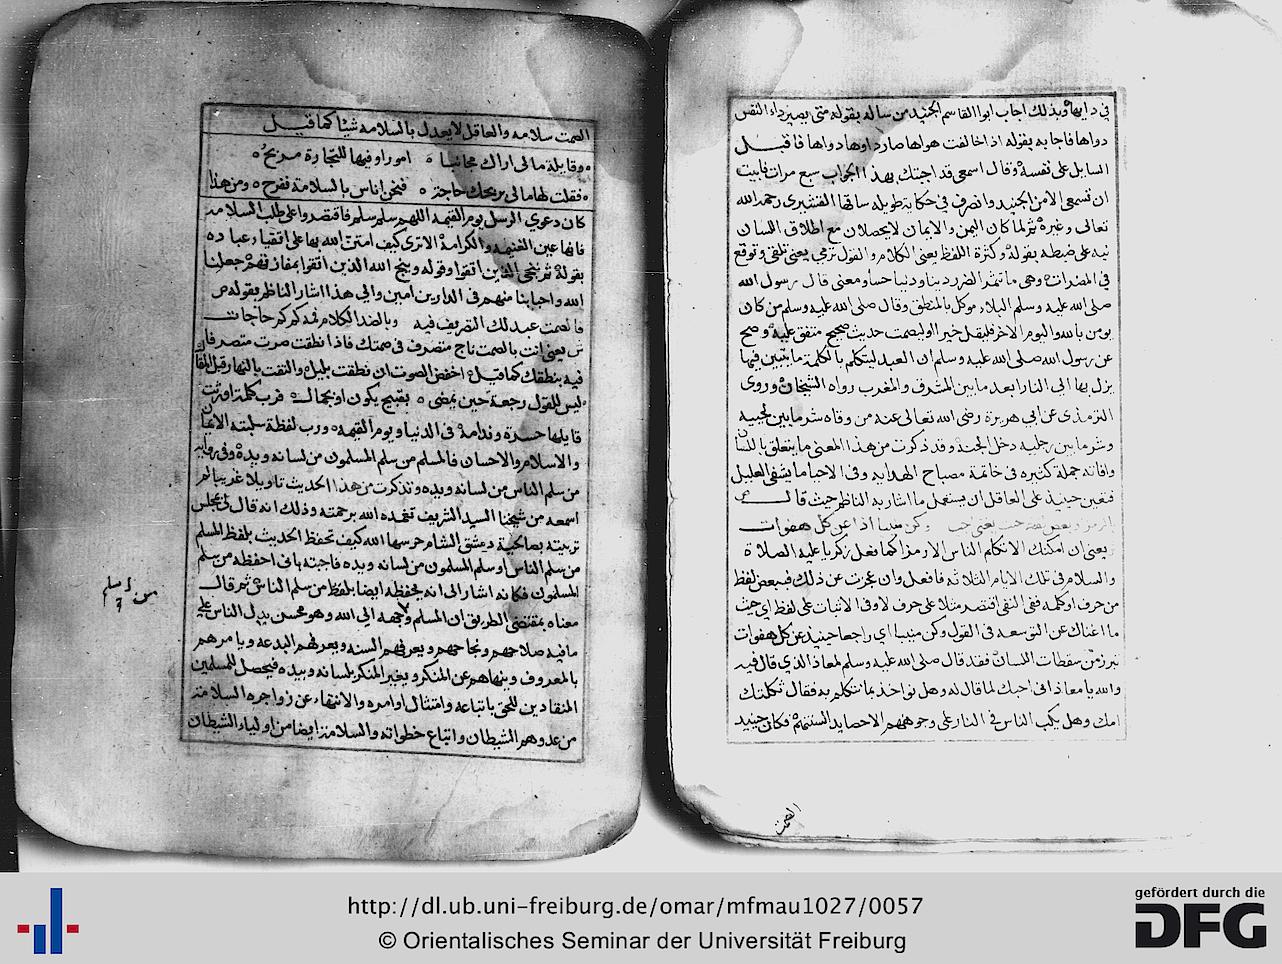 في دايها وبذلك اجاب ابوا القاسم الجنيد من ساله بقوله متى يصير داء النفس
دواها فاجابه بقوله اذا خالفت هواها صار داوها دواها فاقبل
السايل على نفسه وقال اسمعي قد اجبتك بهذا الجواب سبع مرات فابيت
ان تسمعي الا من الجنيد وانصرف في حكاية طويله ساقها القشيري رحمه الله
تعالى وغيره ثم لما كان اليمن والايمان لا يحصلان مع اطلاق اللسان
نبه على ضبطه بقوله وكثرة اللفظ يعني الكلام والقول ترمي يعني تلقي وتوقع
في المضرات وهي ما تثمر الضرر دينا ودنيا حسا ومعنى قال رسول الله
صلى الله عليه وسلم البلاء موكل بالمنطق وقال صلى الله عليه وسلم من كان
يومن بالله واليوم الاخر فليقل خيرا او ليصمت حديث صحيح متفق عليه وصح
عن رسول الله صلى الله عليه وسلم ان العبد ليتكلم بالكلمة ما يتبين فيها
يزل بها الى النار ابعد ما بين المشرق والمغرب رواه الشيخان وروى
الترمذي عن ابي هريرة رضي الله تعالى عنه من وقاه شر ما بين لحييه
وشر ما بين رجليه دخل الجنة وقد ذكرت من هذا المعنى ما يتعلق باللسان
وافاته جملة كثيره في خاتمة مصباح الهدايه وفي الاحيا ما يشفي العليل
فتعين حينيذ على العاقل ان يستعمل ما اشار به الناظم حيث قال
وكن منيبا اذا عن كل هفوات
يعني ان امكنك الا تكلم الناس الا رمزا كما فعل زكريا عليه الصلاة
والسلام في تلك الايام الثلاثه فافعل وان عجزت عن ذلك فببعض لفظ
من حرف او كلمه ففي النفي اقتصر مثلا على حرف لا وفي الاثبات على لفظ اي حيث
ما اغناك عن التوسعه في القول وكن منيبا اي راجعا حينيذ عن كل هفوات
تبرز من سقطات اللسان فقد قال صلى الله عليه وسلم لمعاذ الذي قال فيه
والله يا معاذ اني احبك لما قال له وهل نواخذ بما نتكلم به فقال ثكلتك
امك وهل يكب الناس في النار على وجوههم الا حصايد السنتهم فكان حينيذ
الصمت
الصمت سلامه والعاقل لا يعدل بالسلامه شيئا كما قيل
وقايلة مالي اراك مجانبا امورا وفيها للتجارة مربح
فقلت لها مالي بربحك حاجة فنحن اناس بالسلامة نفرح ومن هنا
كان دعوي الرسل يوم القيمه اللهم سلم سلم فاقتصروا على طلب السلامه
فانها عين الغنيمه والكرامة الا ترى كيف امتن الله بها على اتقياء عباده
بقوله ثم ننجي الذين اتقوا وقوله وينجي الله الذين اتقوا بمفازتهم جعلنا
الله واحبابنا منهم في الدارين امين والى هذا اشار الناظم بقوله ص
فالصمت عبد لك التصريف فيه وبالضد الكلام فدع كركر حاجات
ش يعني انت بالصمت تاج متصرف في صمتك فاذا نطقت صرت متصرفا
فيه بنطقك كما قيل اخفض الصوت ان نطقت بليل والتفت بالنهار قبل المقال
ليس للقول رجعة حين يمضي بقبيح يكون او بجمال فرب كلمة اورثت
قايلها حسرة وندامة في الدنيا ويوم القيمه ورب لفظة سلبته الايمان
والاسلام والاحسان فالمسلم من سلم المسلمون من لسانه ويده وفي روايه
من سلم الناس من لسانه ويده وتذكرت من هذا الحديث تاويلا غريبا لم
اسمعه من شيخنا السيد الشريف تغمده الله برحمته وذلك انه قال لي بمجلس
تربيته بصالحية دمشق الشام حرسها الله كيف تحفظ الحديث بلفظ المسلم
من سلم الناس او سلم المسلمون من لسانه ويده فاجبته باني احفظه من سلم
المسلمون فكانه اشار الى انه يحفظه ايضا بلفظ من سلم الناس ثم قال
معناه بمقتضى الطريق ان المسلم وجهه الى الله وهو محسن يدل الناس على
ما فيه صلاحهم ونجاحهم ويعرفهم السنه ويعرفهم البدعه ويامرهم
بالمعروف وينهاهم عن المنكر ويغير المنكر بلسانه وبيده فيحصل للمسلمين
المنقادين للحق باتباعه وامتثال اوامره والانتهاء عن زواجره السلامه
من عدوهم الشيطان واتباع خطواته والسلامة ايضا من اولياء الشيطان
من اسلم
http://dl.ub.uni-freiburg.de/omar/mfmau1027/0057
© Orientalisches Seminar der Universität Freiburg
gefördert durch die
DFG